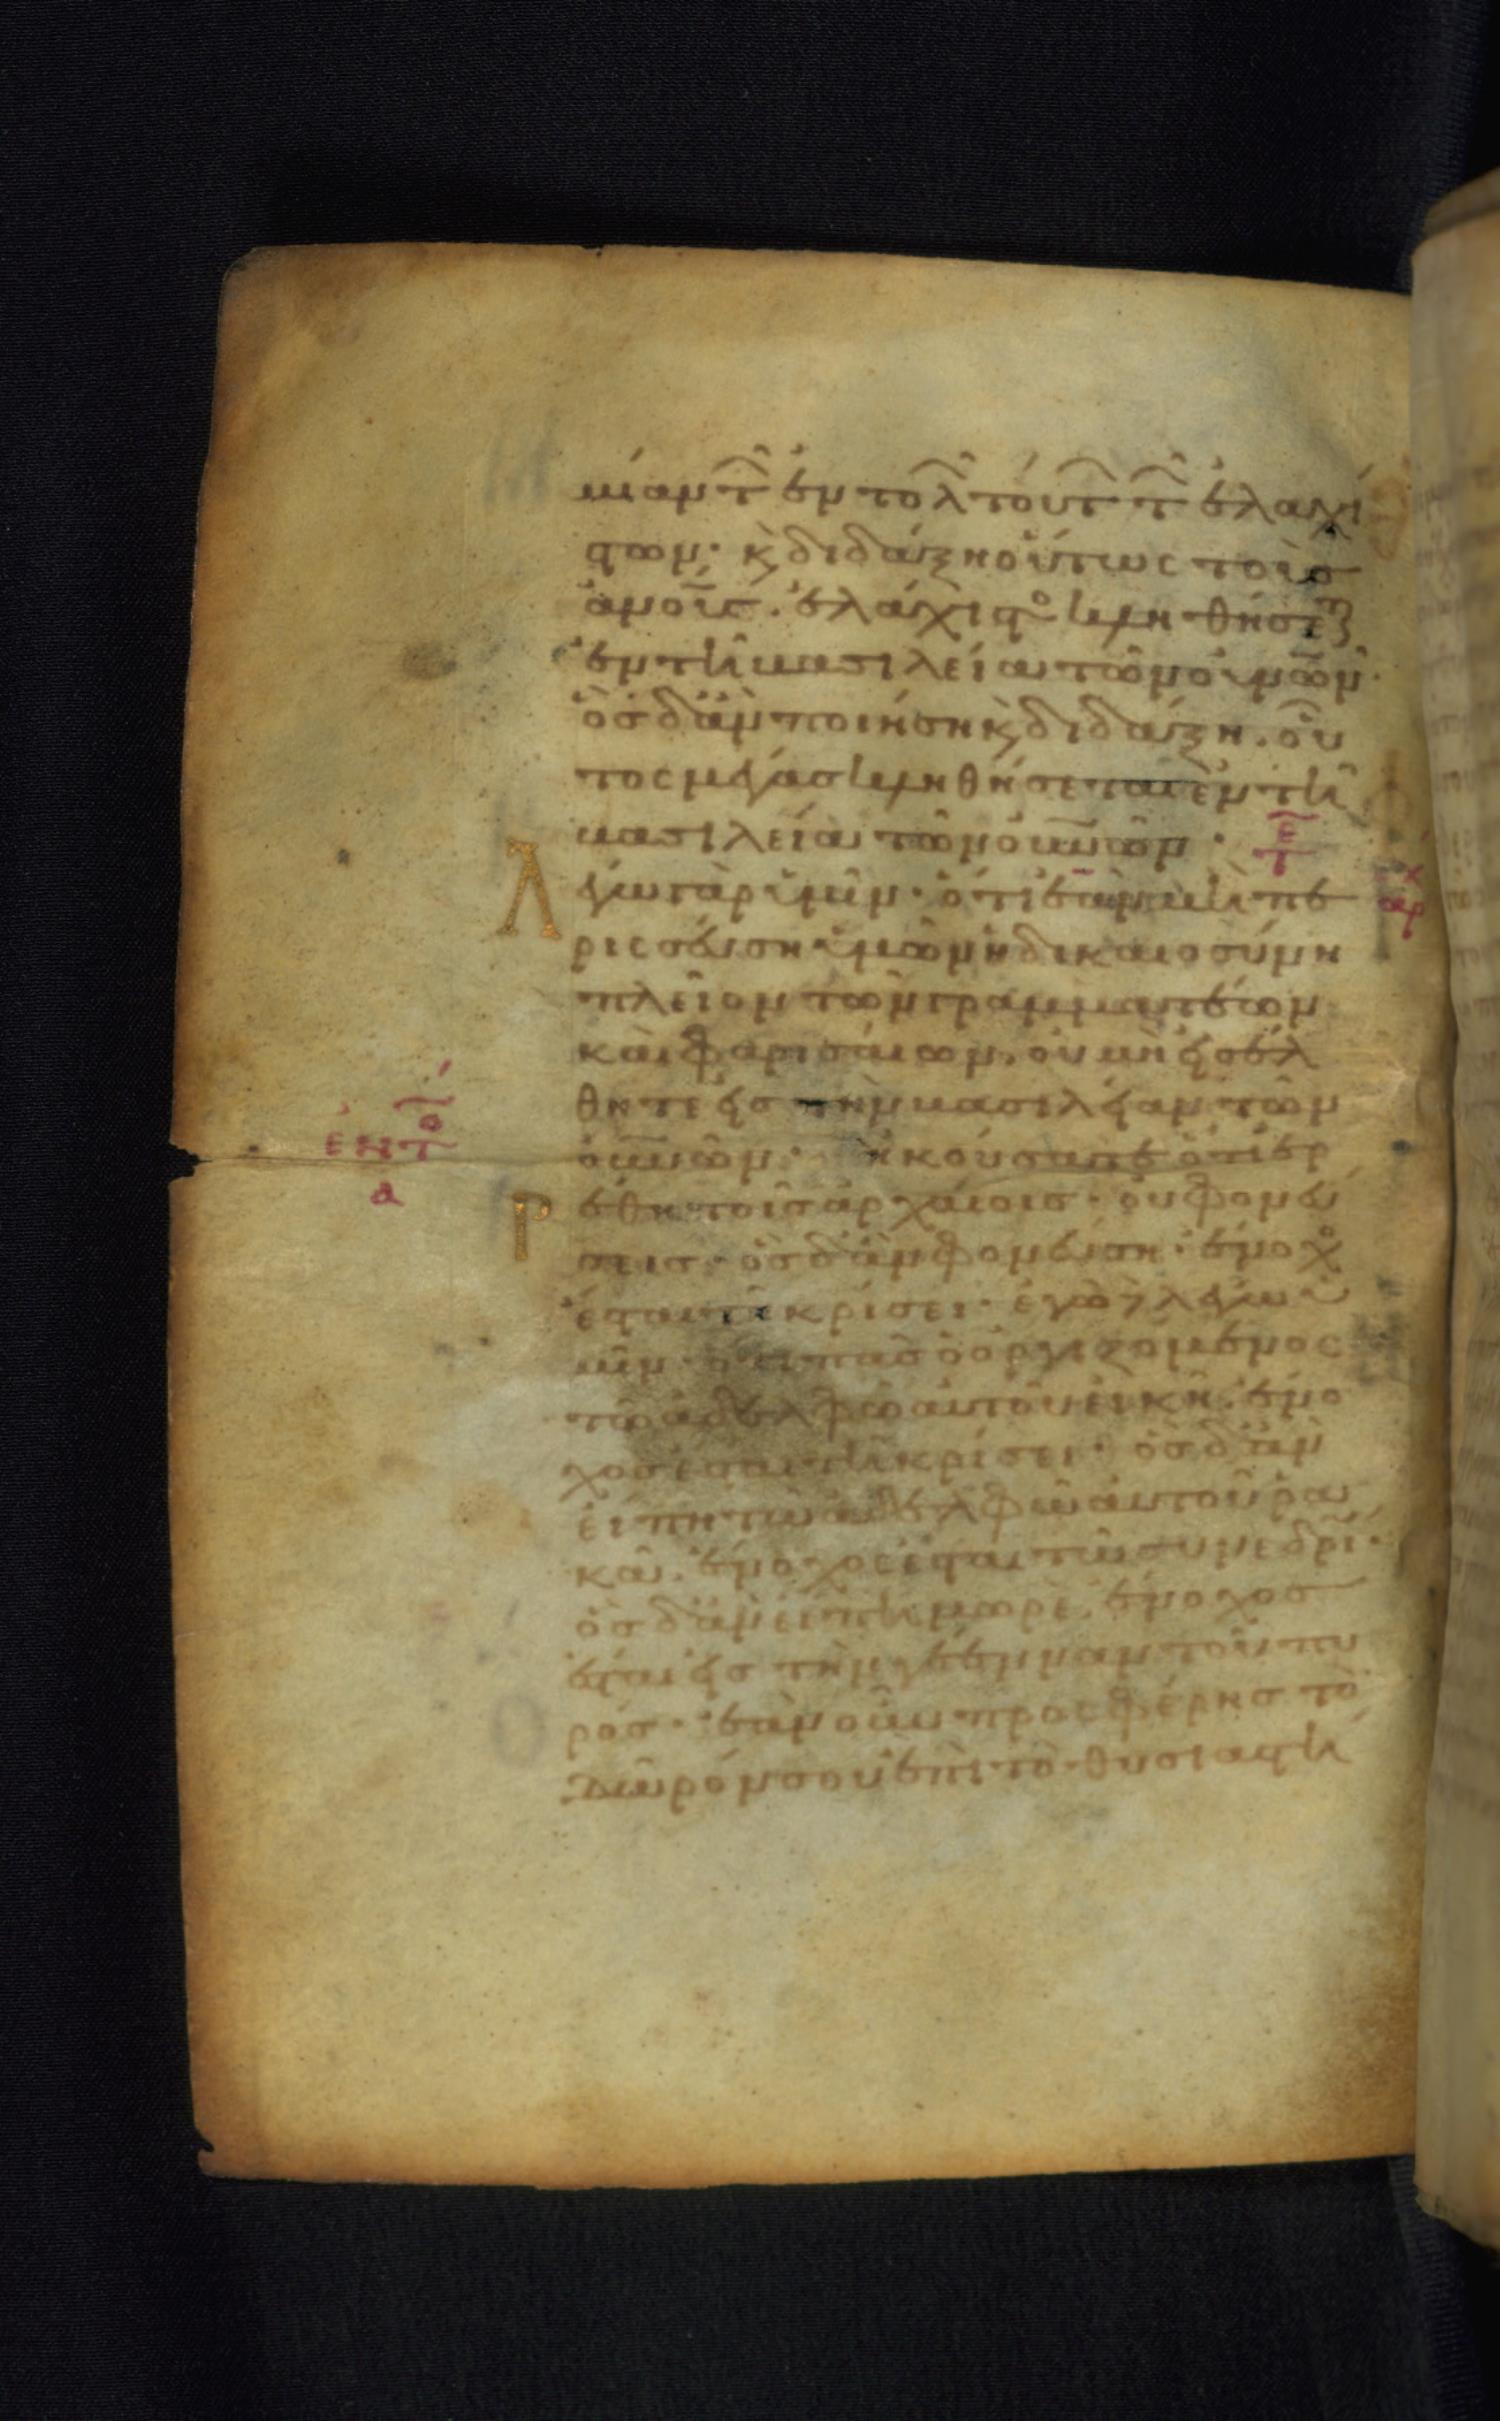 μίαν τῶν ἐντολῶν τούτων τῶν ἐλαχί
στων· κ διδάξη οὕτως τοὺς
ἀνους. ἐλάχιστος κληθήσεται
ἐν τῆ βασιλεία τῶν οὐνῶν·
ὃς δ' ἂν ποιήση κ διδάξη. οὗ
τος μέγας κληθήσεται ἐν τῆ
βασιλεία τῶν οὐνῶν·
Λέγω γὰρ ὑμῖν· ὅτι ἐὰν μὴ πε
ρισσεύση ὑμῶν ἡ δικαιοσύνη
πλεῖον τῶν γραμματέων
καὶ φαρισαίων. οὐ μὴ εἰσέλ
θητε εἰς τὴν βασιλείαν τῶν
οὐνῶν· ἠκούσατε ὅτι ἐρ
ρέθη τοῖς ἀρχαίοις· οὐ φονεύ
σεις· ὃς δ' ἂν φονεύση· ἔνοχος
ἔσται τῆ κρίσει· ἐγὼ δὲ λέγω ὑ
μῖν· ὅτι πᾶς ὁ ὀργιζόμενος
τῶ ἀδελφῶ αὐτοῦ εἰκῆ. ἔνο
χος ἔσται τῆ κρίσει· ὃς δ' ἂν
εἴπη τῶ ἀδελφῶ αὐτοῦ ρα
κά. ἔνοχος ἔσται τῶ συνεδρί·
ὃς δ' ἂν εἴπη μωρέ. ἔνοχος
ἔσται εἰς τὴν γέενναν τοῦ πυ
ρός· ἐὰν οὖν προσφέρης τὸ
δῶρόν σου ἐπὶ τὸ θυσιαστή